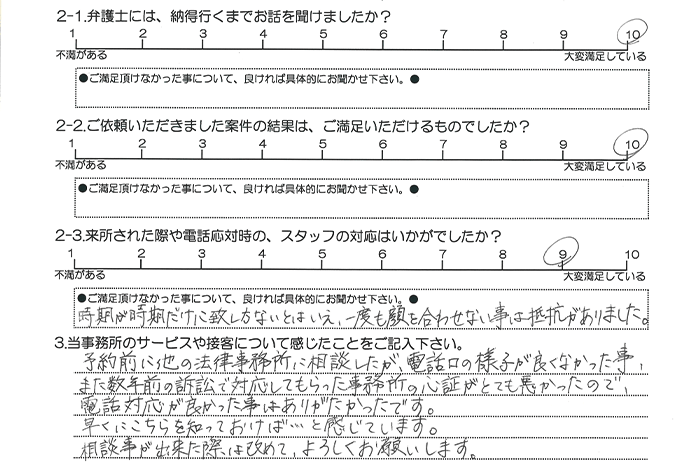 2-1.弁護士には、納得行くまでお話を聞けましたか?
1 2 3 4 5 6 7 8 9 10
不満がある 大変満足している
●ご満足頂けなかった事について、良ければ具体的にお聞かせ下さい。●
2-2.ご依頼いただきました案件の結果は、ご満足いただけるものでしたか?
1 2 3 4 5 6 7 8 9 10
不満がある 大変満足している
●ご満足頂けなかった事について、良ければ具体的にお聞かせ下さい。●
2-3.来所された際や電話応対時の、スタッフの対応はいかがでしたか?
1 2 3 4 5 6 7 8 9 10
不満がある 大変満足している
●ご満足頂けなかった事について、良ければ具体的にお聞かせ下さい。●
時期が時期だけに致し方ないとはいえ、一度も顔を合わせない事は抵抗がありました。
3.当事務所のサービスや接客について感じたことをご記入下さい。
予約前に他の法律事務所に相談したが、電話口の様子が良くなかった事、
また数年前の訴訟で対応してもらった事務所の心証がとても悪かったので、
電話対応が良かった事はありがたかったです。
早くにこちらを知っておけば…と感じています。
相談事が出来た際は改めて、よろしくお願いします。